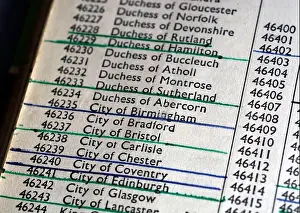 46225 Duchess of Gloucester
46226 Duchess of Norfolk
46227 Duchess of Devonshire 46400
46228 Duchess of Rutland 46401
46229 Duchess of Hamilton 46402
46230 Duchess of Buccleuch 46403
46231 Duchess of Atholl 46404
46232 Duchess of Montrose 46405
46233 Duchess of Sutherland 46406
46234 Duchess of Abercorn 46407
46235 City of Birmingham 46408
46236 City of Bradford 46409
46237 City of Bristol 46410
46238 City of Carlisle 46411
46239 City of Chester 46412
46240 City of Coventry 46413
46241 City of Edinburgh 46414
46242 City of Glasgow 46415
46243 City of Lancaster
46244